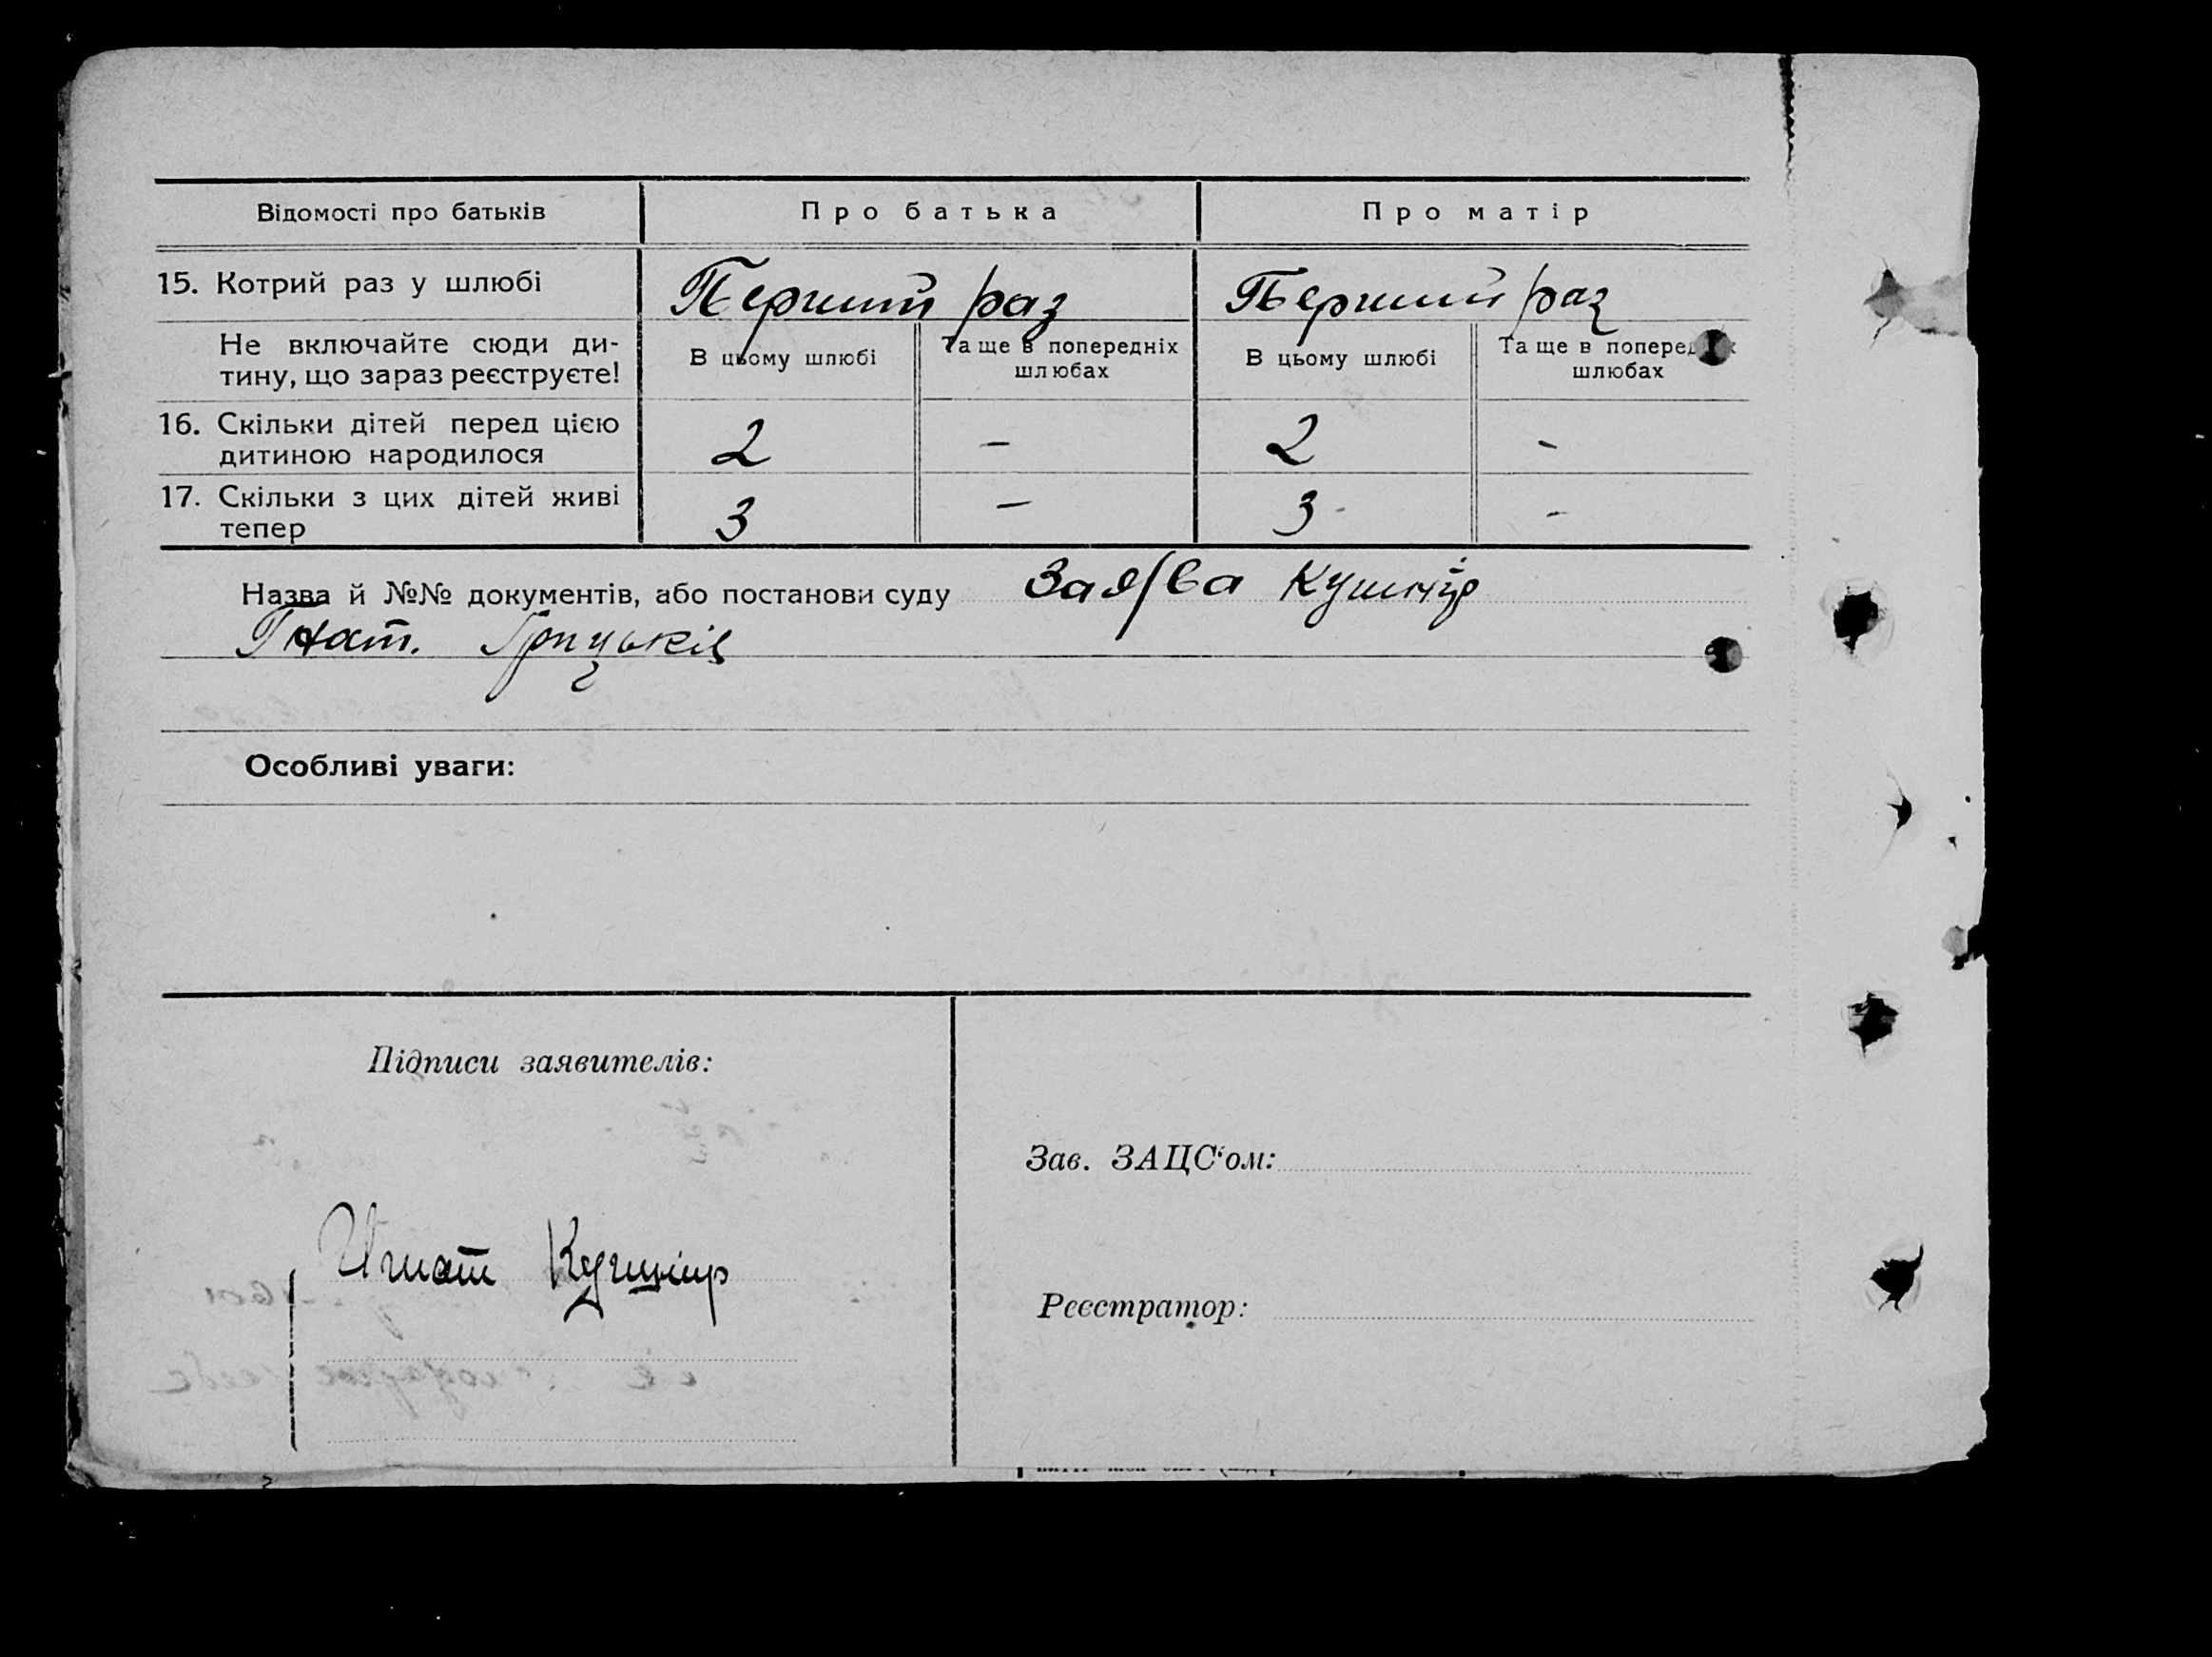 Відомості про батьків Про батька Про матір
15. Котрий раз у шлюбі Перший раз Перший раз
Не включайте сюди ди- В цьому шлюбі Та ще в попередніх В цьому шлюбі Та ще в
тину, що зараз реєструєте! шлюбах шлюбах
16. Скільки дітей перед цією 2 – 2 -
дитиною народилося
17. Скільки з цих дітей живі 3 – 3 -
тепер
Назва й №№ документів, або постанови суду Заява Кушнір
Гнат. Грицьків
Особливі уваги:
Підписи заявителів:
Зав. ЗАЦС‘ом:
Игнат Кушнір
Реєстратор: